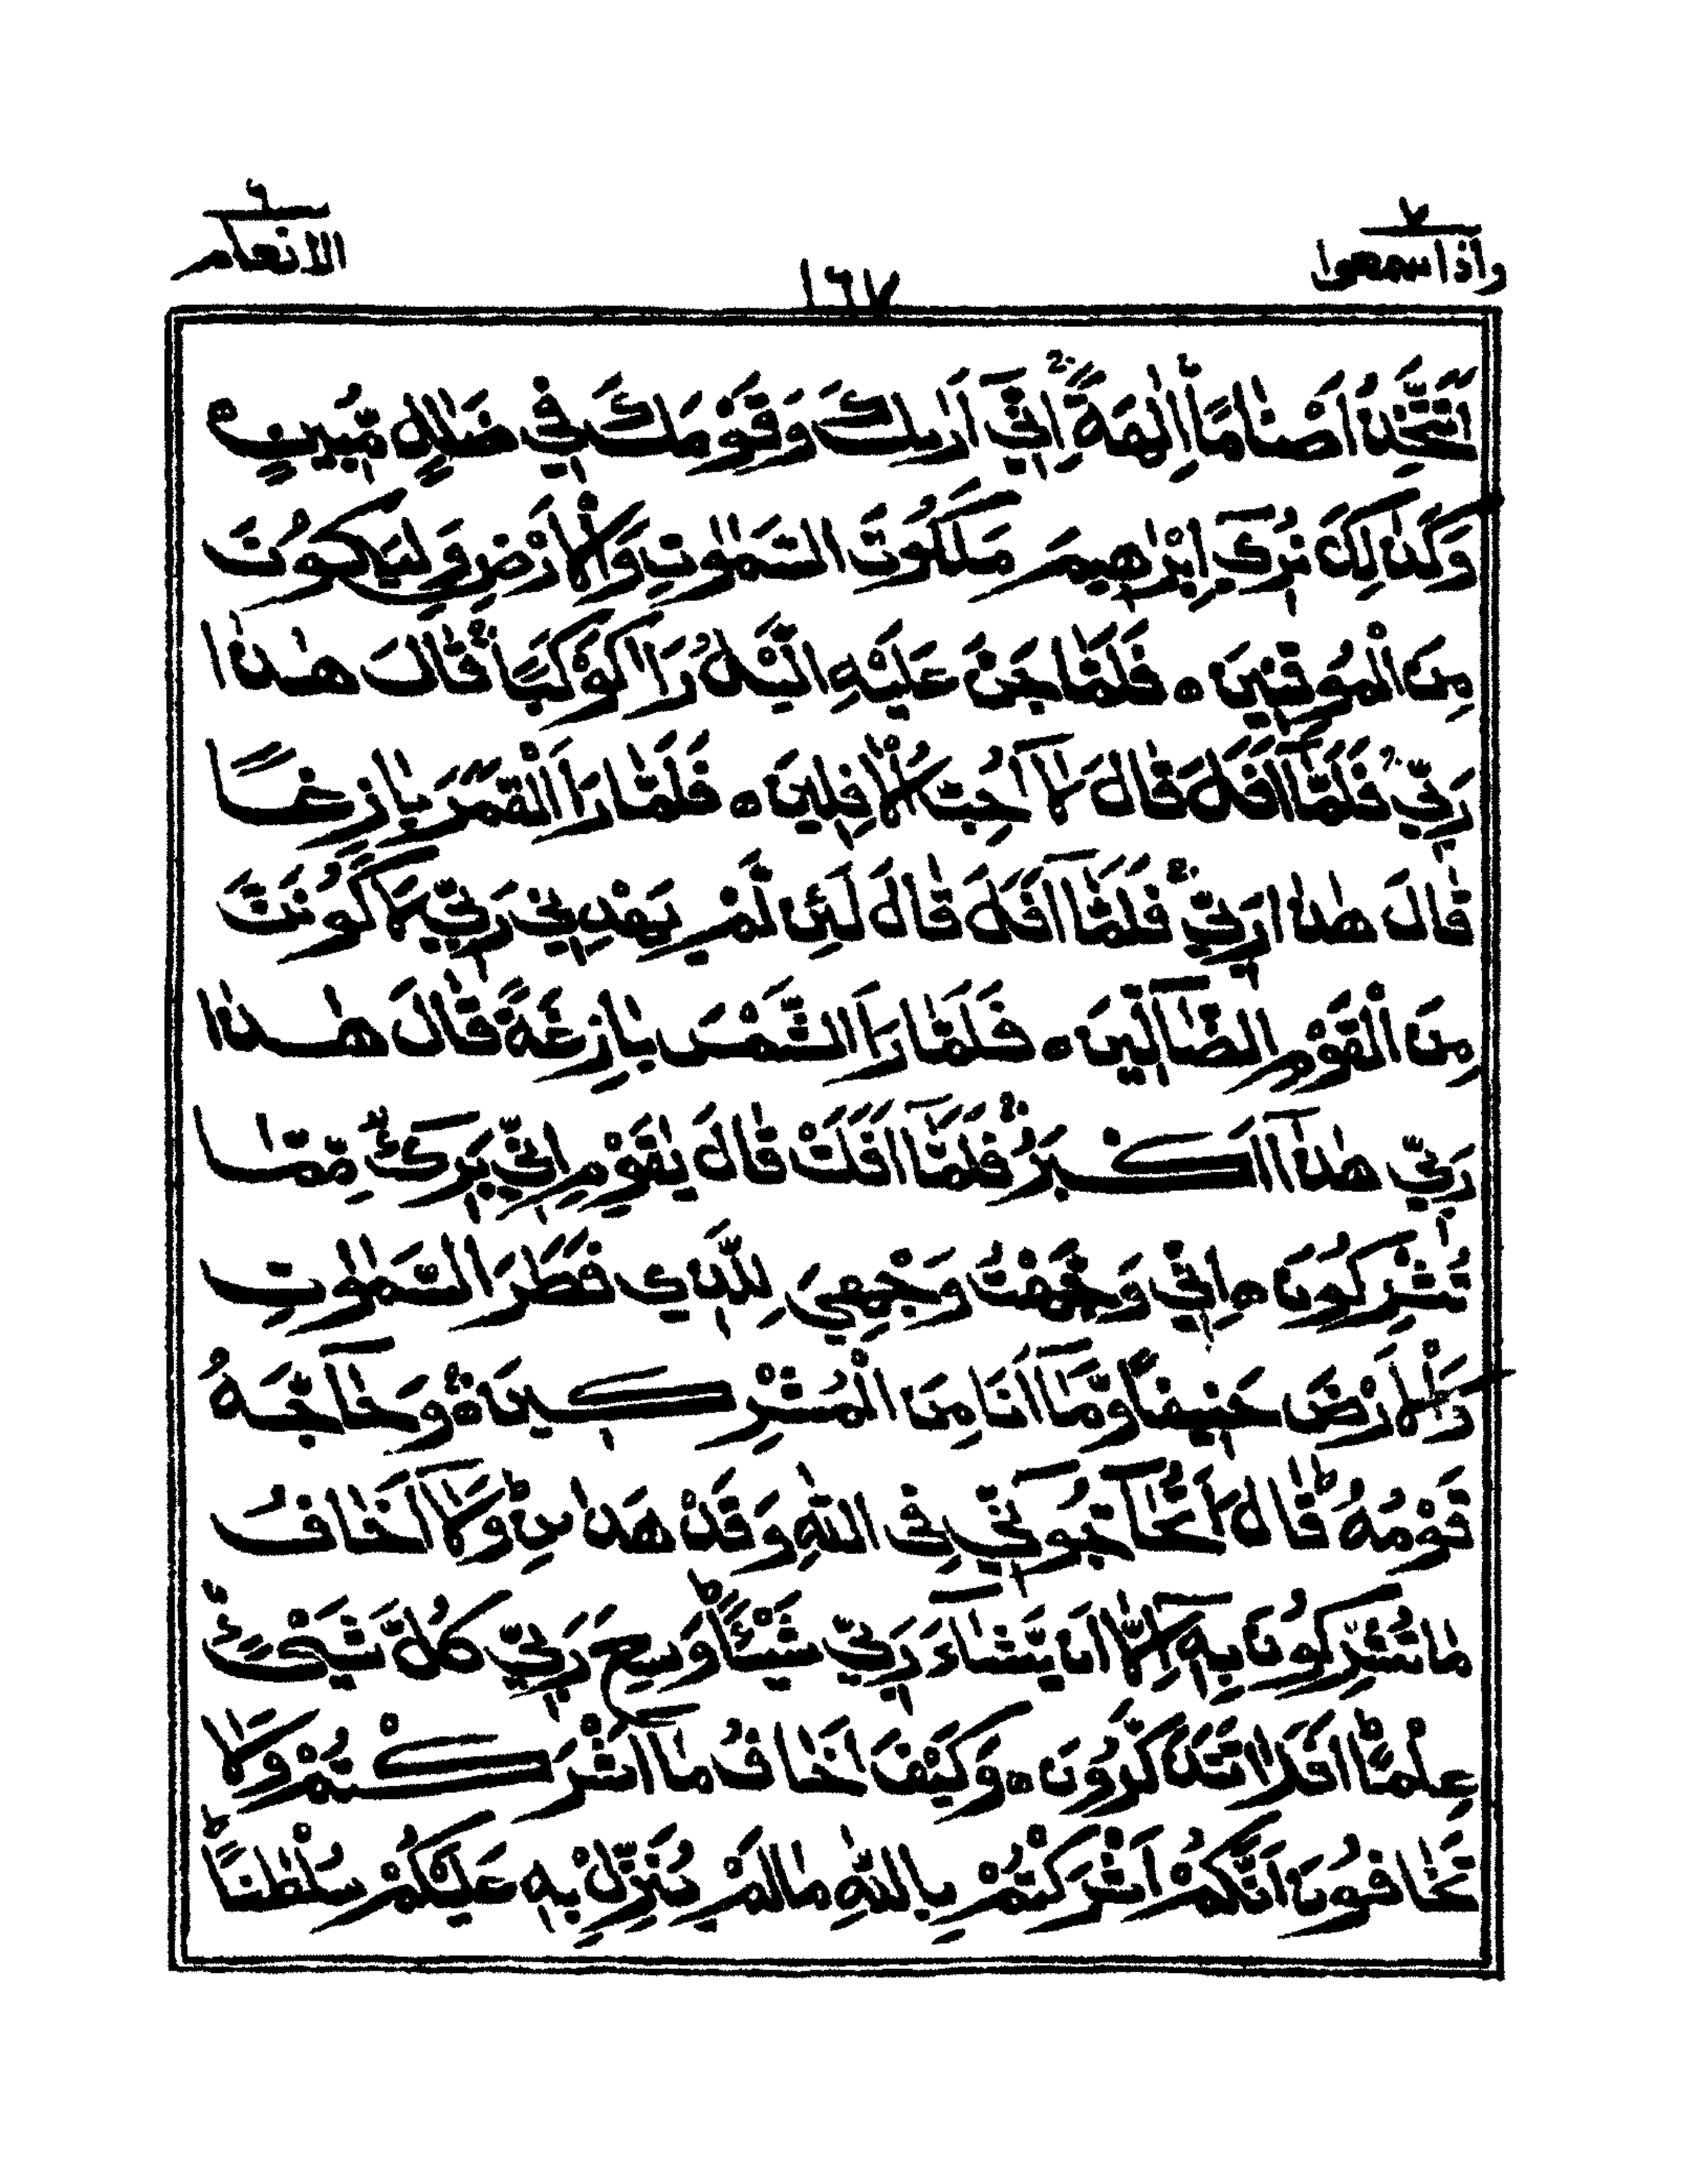 واذاسمعوا ٧
١٦٧
الانعام ٦
اَتَتَّخِذُ اَصْنَامًا اٰلِهَةً ۚ اِنِّيْٓ اَرٰىكَ وَقَوْمَكَ فِيْ ضَلٰلٍ مُّبِيْنٍ ۝
وَكَذٰلِكَ نُرِيْٓ اِبْرٰهِيْمَ مَلَكُوْتَ السَّمٰوٰتِ وَالْاَرْضِ وَلِيَكُوْنَ
مِنَ الْمُوْقِنِيْنَ ۝ فَلَمَّا جَنَّ عَلَيْهِ الَّيْلُ رَاٰ كَوْكَبًا ۚ قَالَ هٰذَا
رَبِّيْ ۚ فَلَمَّآ اَفَلَ قَالَ لَآ اُحِبُّ الْاٰفِلِيْنَ ۝ فَلَمَّا رَاَ الْقَمَرَ بَازِغًا
قَالَ هٰذَا رَبِّيْ ۚ فَلَمَّآ اَفَلَ قَالَ لَئِنْ لَّمْ يَهْدِنِيْ رَبِّيْ لَاَكُوْنَنَّ
مِنَ الْقَوْمِ الضَّآلِّيْنَ ۝ فَلَمَّا رَاَ الشَّمْسَ بَازِغَةً قَالَ هٰذَا
رَبِّيْ هٰذَآ اَكْبَرُ ۚ فَلَمَّآ اَفَلَتْ قَالَ يٰقَوْمِ اِنِّيْ بَرِيْٓءٌ مِّمَّا
تُشْرِكُوْنَ ۝ اِنِّيْ وَجَّهْتُ وَجْهِيَ لِلَّذِيْ فَطَرَ السَّمٰوٰتِ
وَالْاَرْضَ حَنِيْفًا وَّمَآ اَنَا مِنَ الْمُشْرِكِيْنَ ۝ وَحَآجَّهٗ
قَوْمُهٗ ؕ قَالَ اَتُحَآجُّوْٓنِّيْ فِي اللّٰهِ وَقَدْ هَدٰىنِ ؕ وَلَآ اَخَافُ
مَا تُشْرِكُوْنَ بِهٖٓ اِلَّآ اَنْ يَّشَآءَ رَبِّيْ شَيْـًٔا ؕ وَسِعَ رَبِّيْ كُلَّ شَيْءٍ
عِلْمًا ؕ اَفَلَا تَتَذَكَّرُوْنَ ۝ وَكَيْفَ اَخَافُ مَآ اَشْرَكْتُمْ وَلَا
تَخَافُوْنَ اَنَّكُمْ اَشْرَكْتُمْ بِاللّٰهِ مَا لَمْ يُنَزِّلْ بِهٖ عَلَيْكُمْ سُلْطٰنًا ؕ